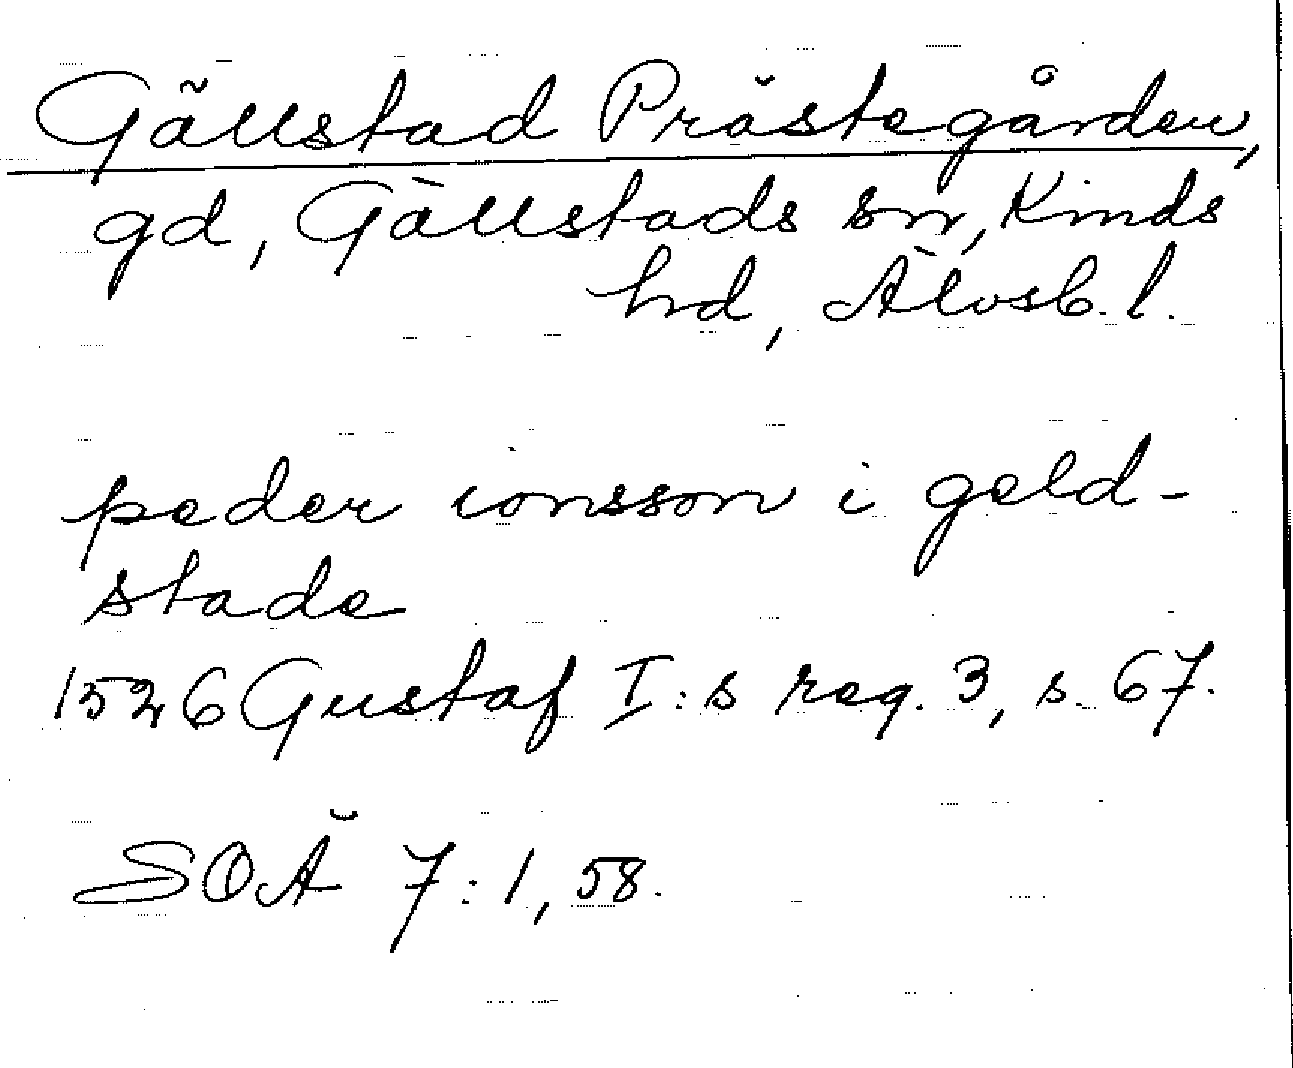 Gällstad Prästegården,
gd, Gällstads sn, Kinds
hd, Älvsb. l.
peder ionsson i geld-
stade
1526 Gustaf I:s reg. 3, s. 67.
SOÄ 7:1, 58.